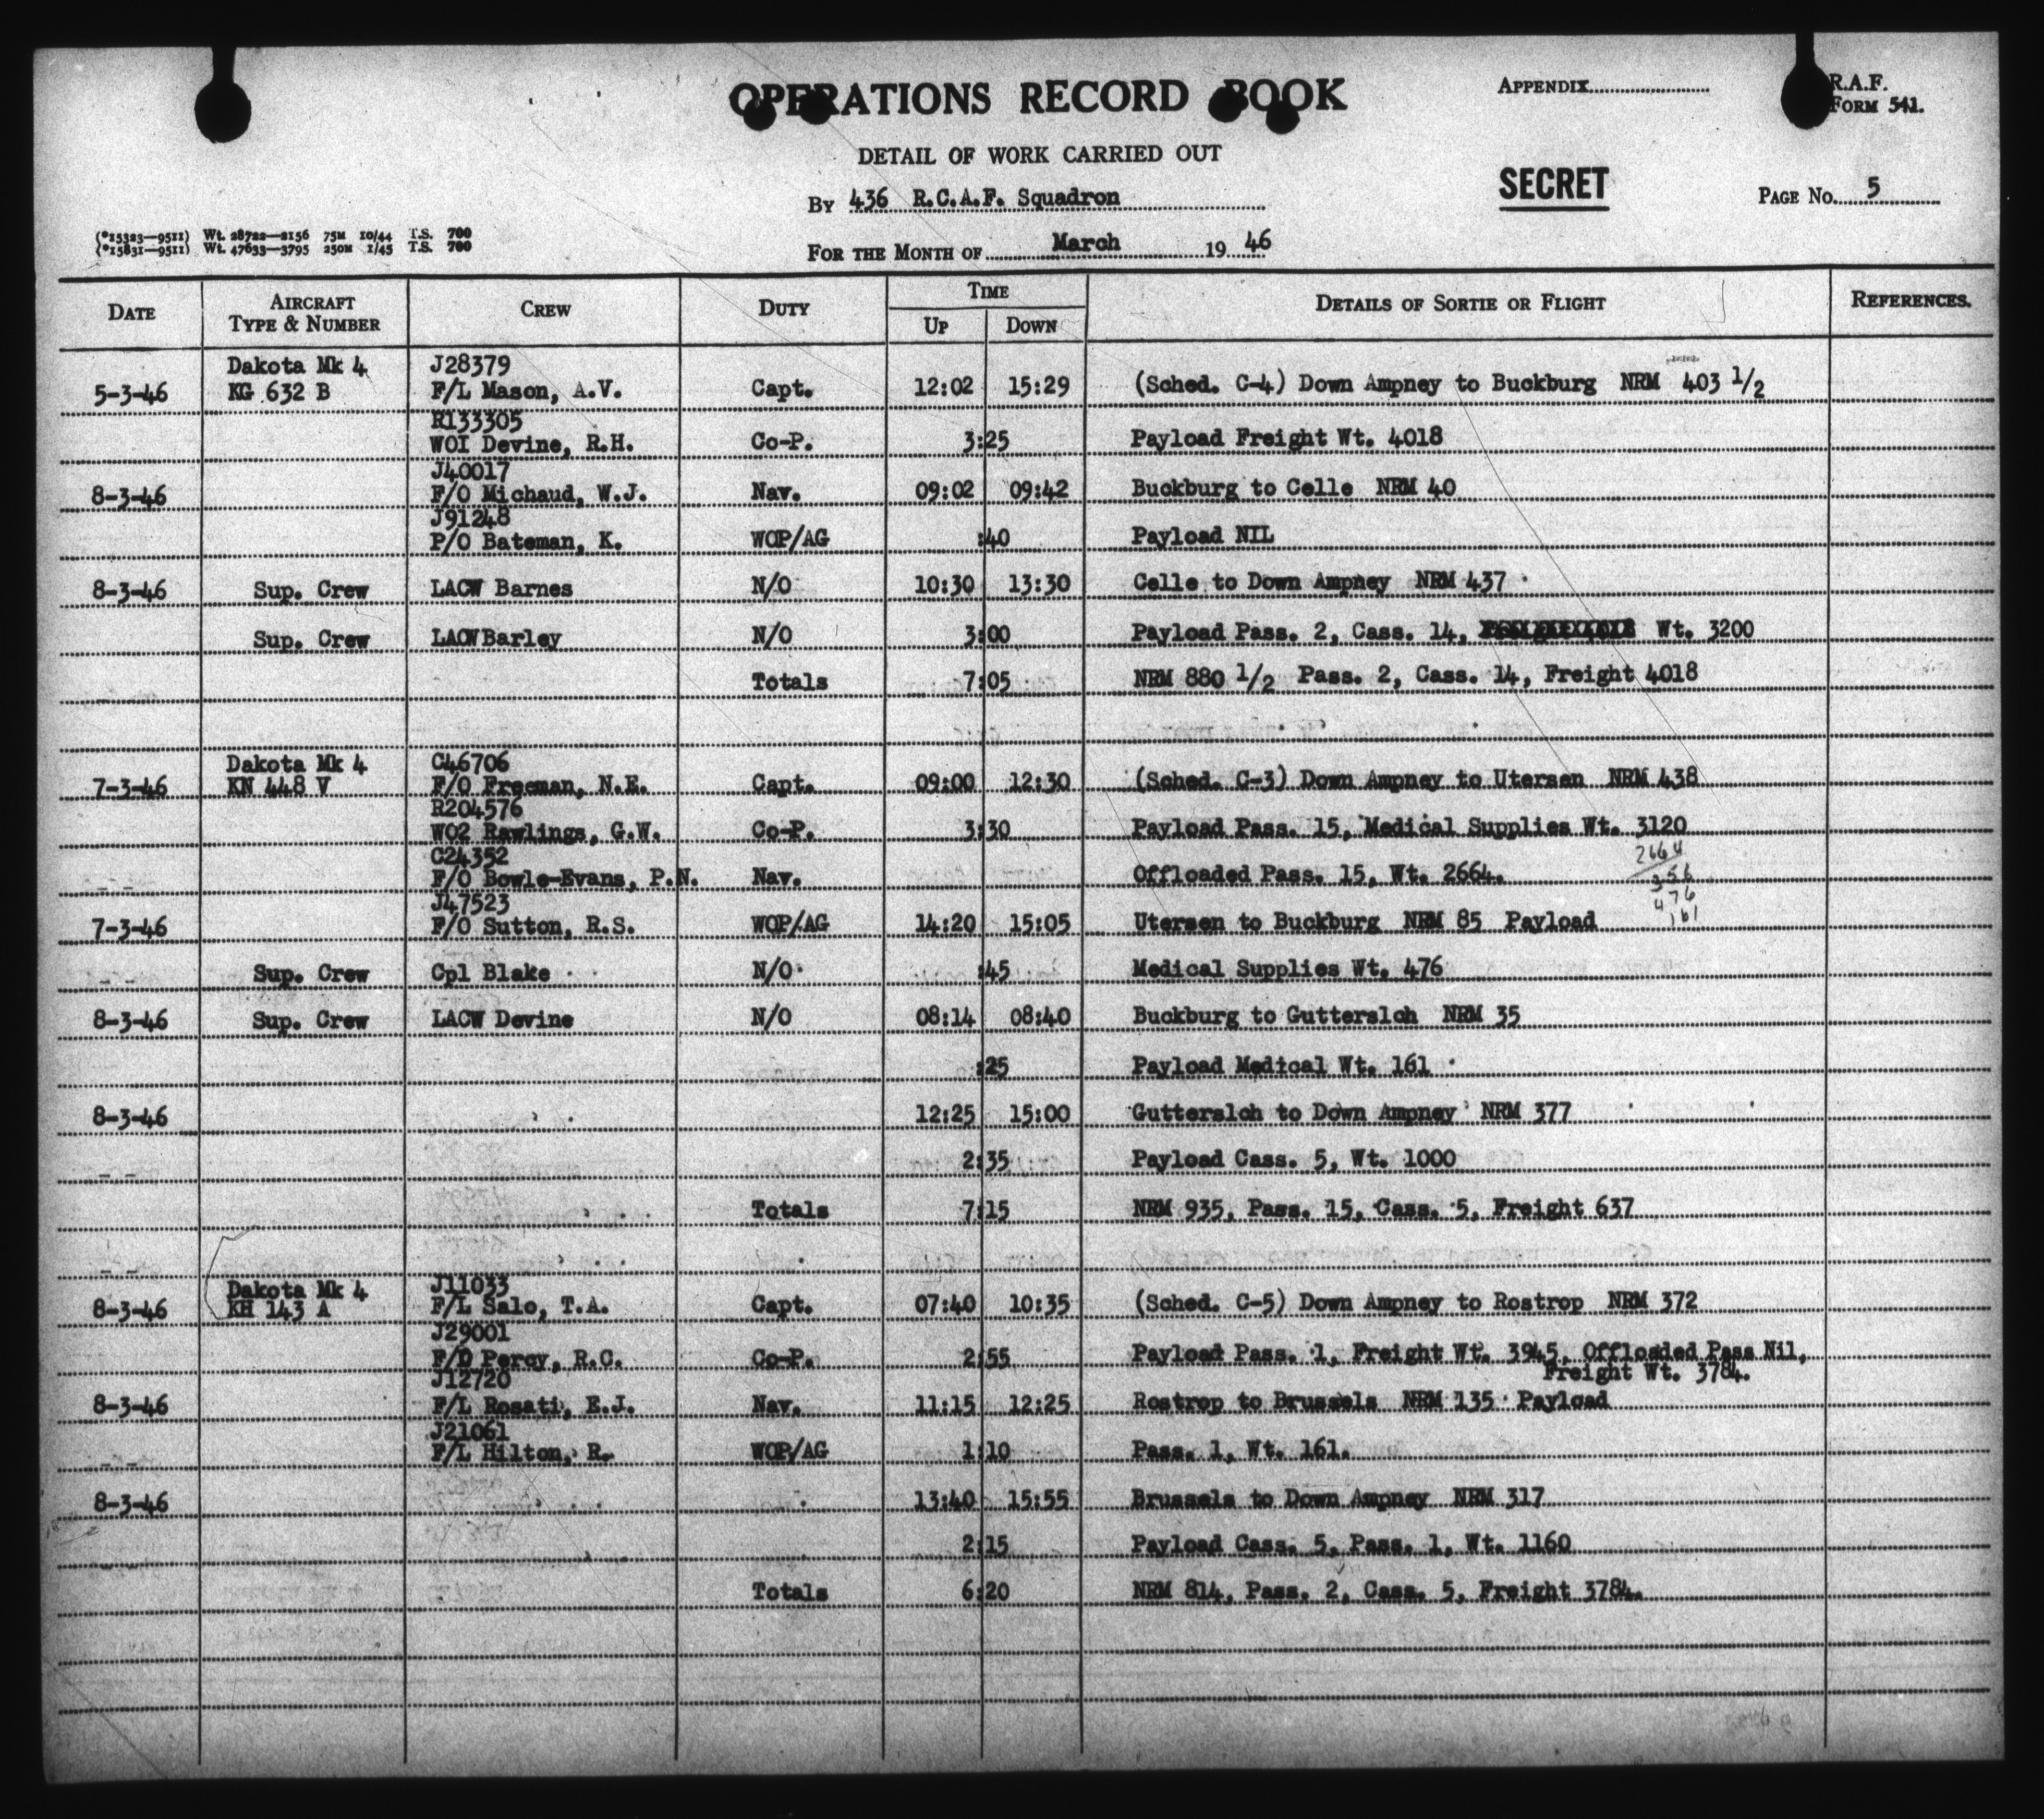 OPERATIONS RECORD BOOK
APPENDIX
R.A.F.
FORM 541.
DETAIL OF WORK CARRIED OUT
SECRET
BY 436 R.C.A.F. Squadron
PAGE No. 5
(*15323—9511) Wt. 28722—2156 75M 10/44 T.S. 700
(*15831—9511) Wt. 47633—3795 250M 1/45 T.S. 700
FOR THE MONTH OF March 19 46
DATE AIRCRAFT TYPE & NUMBER CREW DUTY TIME UP DOWN DETAILS OF SORTIE OR FLIGHT REFERENCES.
Dakota Mk 4 J28379
5-3-46 KG 632 B F/L Mason, A.V. Capt. 12:02 15:29 (Sched. C-4) Down Ampney to Buckburg NRM 403 1/2
R133305
WOI Devine, R.H. Co-P. 3:25 Payload Freight Wt. 4018
J40017
8-3-46 F/O Michaud, W.J. Nav. 09:02 09:42 Buckburg to Celle NRM 40
J91248
P/O Bateman, K. WOP/AG :40 Payload NIL
8-3-46 Sup. Crew LACW Barnes N/O 10:30 13:30 Celle to Down Ampney NRM 437
Sup. Crew LACWBarley N/O 3:00 Payload Pass. 2, Cass. 14, Wt. 3200
Totals 7:05 NRM 880 1/2 Pass. 2, Cass. 14, Freight 4018
Dakota Mk 4 C46706
7-3-46 KN 448 V F/O Freeman, N.E. Capt. 09:00 12:30 (Sched. C-3) Down Ampney to Utersen NRM 438
R204576
WO2 Rawlings, G.W. Co-P. 3:30 Payload Pass. 15, Medical Supplies Wt. 3120
C24352 2664
F/O Bowle-Evans, P.N. Nav. Offloaded Pass. 15, Wt. 2664. 356
J47523 476
7-3-46 F/O Sutton, R.S. WOP/AG 14:20 15:05 Utersen to Buckburg NRM 85 Payload 161
Sup. Crew Cpl Blake N/O :45 Medical Supplies Wt. 476
8-3-46 Sup. Crew LACW Devine N/O 08:14 08:40 Buckburg to Gutterslch NRM 35
:25 Payload Medical Wt. 161
8-3-46 12:25 15:00 Gutterslch to Down Ampney NRM 377
2:35 Payload Cass. 5, Wt. 1000
Totals 7:15 NRM 935, Pass. 15, Cass. 5, Freight 637
Dakota Mk 4 J11033
8-3-46 KH 143 A F/L Salo, T.A. Capt. 07:40 10:35 (Sched. C-5) Down Ampney to Rostrop NRM 372
J29001
F/O Percy, R.C. Co-P. 2:55 Payload Pass. 1, Freight Wt. 3945, Offloaded Pass Nil,
J12720 Freight Wt. 3784.
8-3-46 F/L Rosati, E.J. Nav. 11:15 12:25 Rostrop to Brussels NRM 135 Payload
J21061
F/L Hilton, R. WOP/AG 1:10 Pass. 1, Wt. 161.
8-3-46 13:40 15:55 Brussels to Down Ampney NRM 317
2:15 Payload Cass. 5, Pass. 1, Wt. 1160
Totals 6:20 NRM 814, Pass. 2, Cass. 5, Freight 3784.